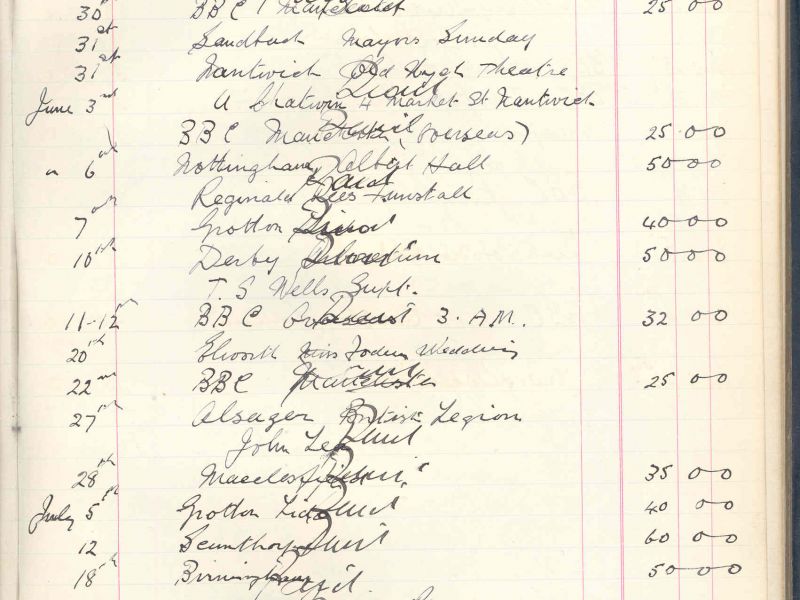 30th BBC Manchester 25 00
31st Sandbach Mayors Sunday
31st Nantwich Old Wych Theatre
June 3rd A 4 Market St Nantwich
BBC Manchester (Overseas) 25 00
" 6th Nottingham Albert Hall 50 00
Reginald Lees Tunstall
7th Grotton Lido 40 00
10th Derby Arboretum 50 00
T. S Wells Supt.
11-12th BBC Overseas 3. A.M. 32 00
20th Elworth Miss Wedding
22nd BBC Manchester 25 00
27th Alsager British Legion
John Lea
28th Macclesfield 35 00
July 5th Grotton Lido 40 00
12 Scunthorpe 60 00
18th Birmingham 50 00